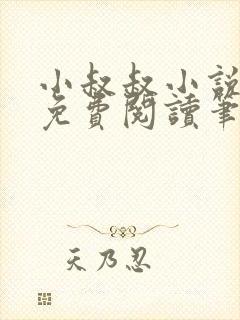 小叔叔小說
免費閱讀筆
天乃忍